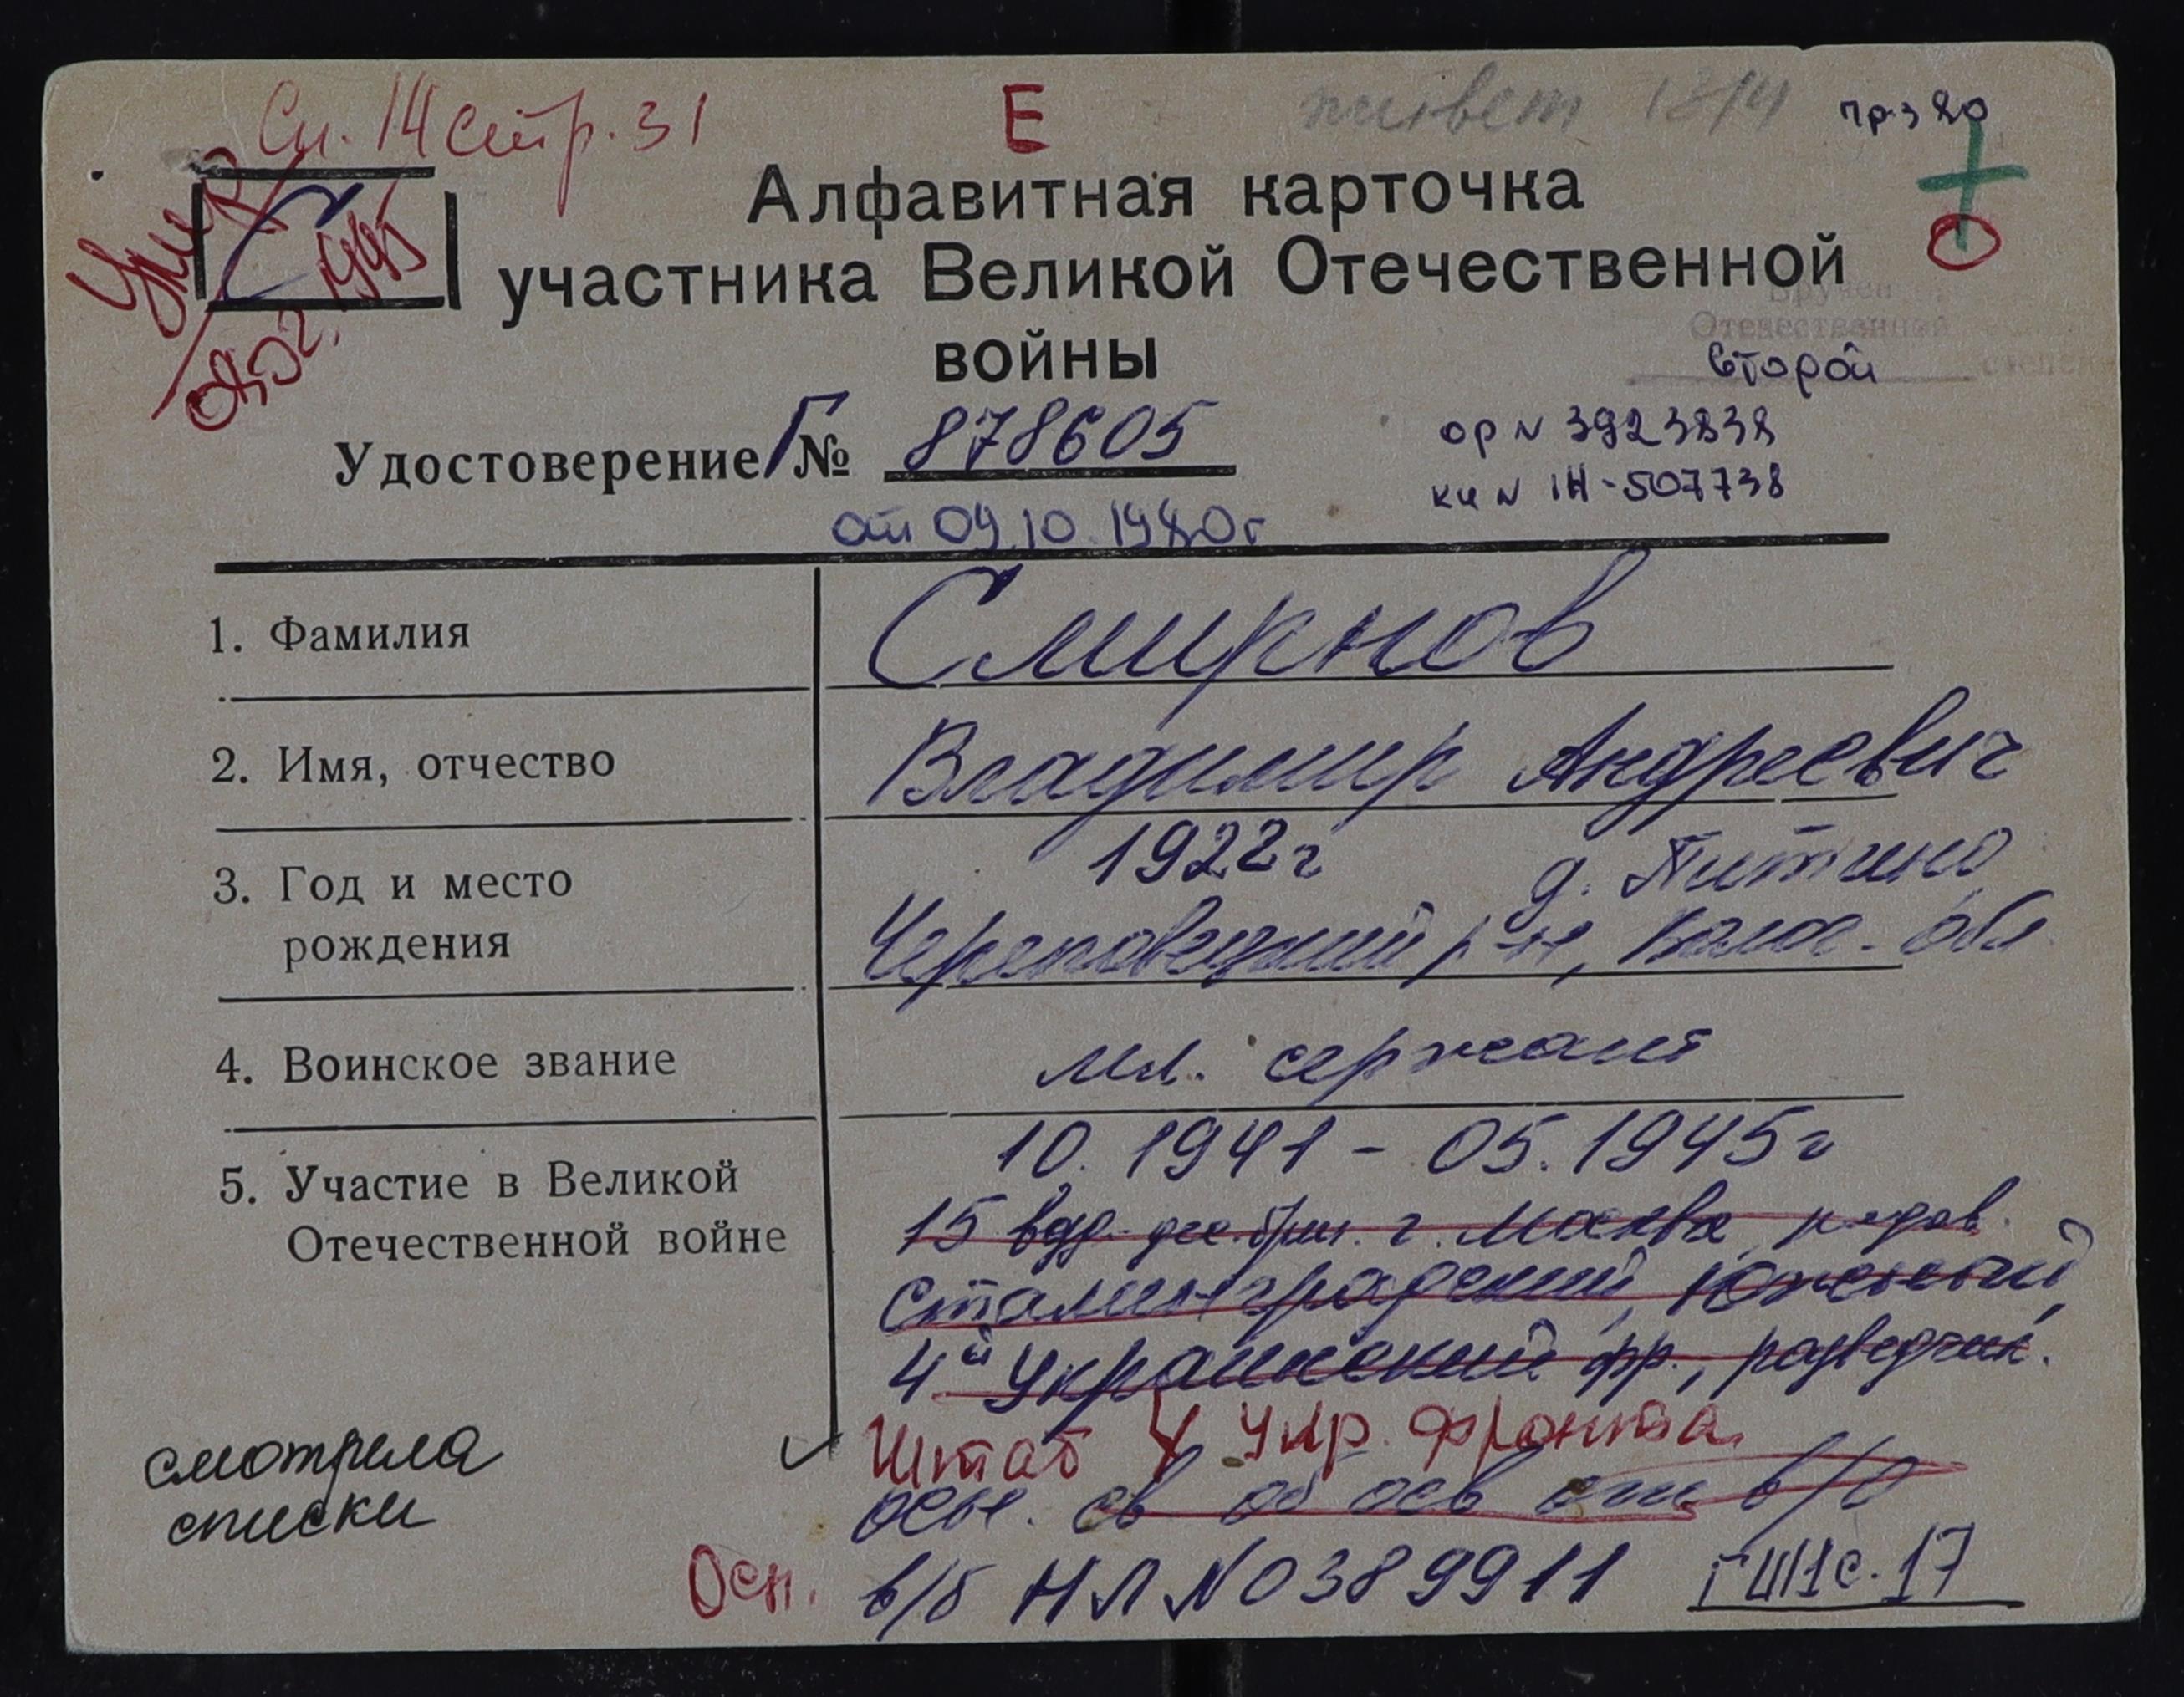 Сп. 14 стр. 31
Е
пр. 3 80
Умер
С
Алфавитная карточка
участника Великой Отечественной
войны
Вручен
Отечественной
второй степени
Удостоверение Г № 878605
ор N 3923838
кн N 1Н-507738
от 09.10.1980г
1. Фамилия Смирнов
2. Имя, отчество Владимир Андреевич
3. Год и место рождения 1922г д. Питино
Череповецкий р-н, Волог. обл
4. Воинское звание мл. сержант
5. Участие в Великой Отечественной войне 10.1941 - 05.1945г
15 возд. дес. бриг. г. Москва, рядов.
Сталинградский, Южный,
4й Украинский фр., разведчик.
Штаб 4 Укр. фронта
осн. св об осв от в/о
смотрела
списки
Осн. в/б НЛ N 0389911 ГШ1с.17